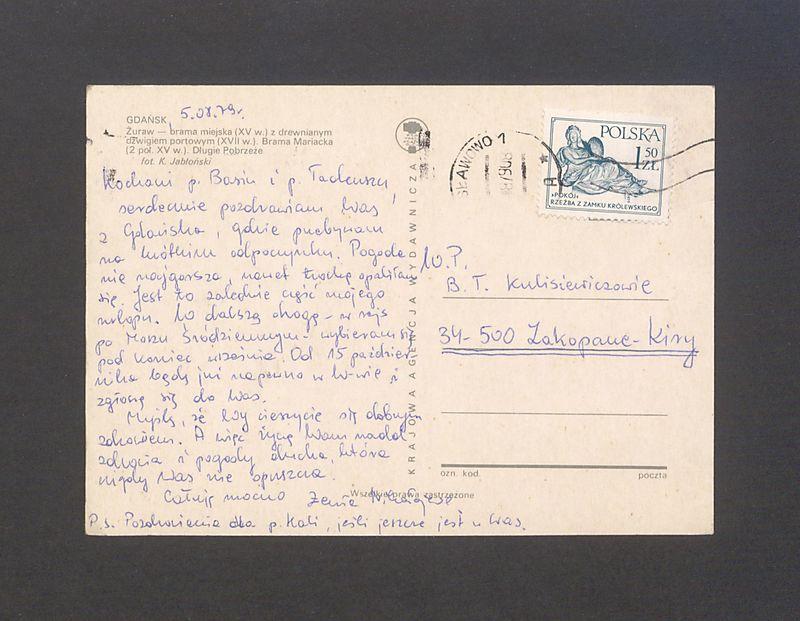 GDAŃSK
5.08.79r.
Żuraw — brama miejska (XV w.) z drewnianym
dźwigiem portowym (XVII w.). Brama Mariacka
(2 poł. XV w.). Długie Pobrzeże
fot. K. Jabłoński
Kochani p. Basiu i p. Tadeuszu,
serdecznie pozdrawiam Was
z Gdańska, gdzie przebywam
na krótkim odpoczynku. Pogoda
nie najgorsza, nawet trochę opaliłam
się. Jest to zaledwie część mojego
urlopu. W dalszą drogę - w rejs
po Morzu Śródziemnym - wybieram się
pod koniec września. Od 15 paździer
nika będę już napewno w W-wie i
zgłoszę się do Was.
Myślę, że Wy cieszycie się dobrym
zdrowiem. A więc życzę Wam nadal
zdrowia i pogody ducha, która
nigdy Was nie opuszcza.
Całuję mocno Zenia
P.s. Pozdrowienia dla p. Hali, jeśli jeszcze jest u Was.
Wszelkie prawa zastrzeżone
KRAJOWA AGENCJA WYDAWNICZA
SŁAWOWO 1
POLSKA
1 50 ZŁ
»POKÓJ«
RZEŹBA Z ZAMKU KRÓLEWSKIEGO
W.P.
B. T. Kulisiewiczowie
34-500 Zakopane-Kiry
ozn. kod.
poczta